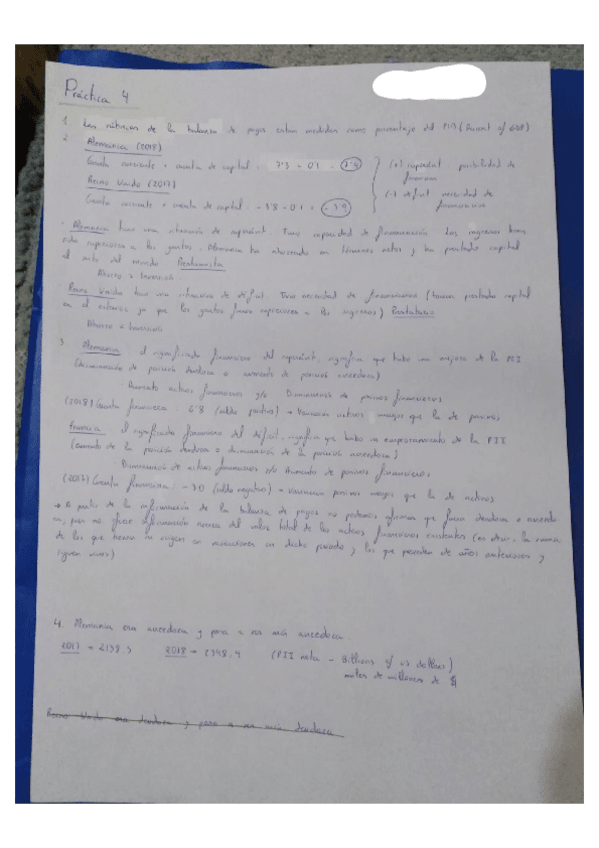 Práctica 4
1. Las rúbricas de la balanza de pagos están medidas como porcentaje del PIB (Percent of GDP)
2. Alemania (2018)
Cuenta corriente + cuenta de capital = 7'3 - 0'1 =
(+) superávit: posibilidad de
Reino Unido (2017)
Cuenta corriente + cuenta de capital = -3'8 - 0'1 = -3'9
(-) déficit: necesidad de
financiación
- Alemania tuvo una situación de superávit. Tuvo capacidad de financiación. Los ingresos han
sido superiores a los gastos. Alemania ha ahorrado en términos netos y ha prestado capital
al resto del mundo. Prestamista
Ahorro > Inversión
- Reino Unido tuvo una situación de déficit. Tuvo necesidad de financiación (tomar prestado capital
en el exterior ya que los gastos fueron superiores a los ingresos) Prestatario
Ahorro < Inversión
3. Alemania: el significado financiero del superávit, significa que hubo una mejora de la PII
(disminución de posición deudora o aumento de posición acreedora)
- Aumento activos financieros y/o Disminución de pasivos financieros
(2018) Cuenta financiera: 6'8 (saldo positivo) → Variación activos mayor que la de pasivos
Francia: el significado financiero del déficit, significa que hubo un empeoramiento de la PII
(aumento de la posición deudora o disminución de la posición acreedora)
- Disminución de activos financieros y/o Aumento de pasivos financieros
(2017) Cuenta financiera: -3'0 (saldo negativo) → Variación pasivos mayor que la de activos
→ A partir de la información de la balanza de pagos no podemos afirmar que fuera deudora o acreedo
ra, pues no ofrece información acerca del valor total de los activos financieros existentes (es decir, la suma
de los que tienen su origen en variaciones en dicho periodo y los que proceden de años anteriores y
siguen vivos)
4. Alemania era acreedora y pasa a ser más acreedora.
2017 → 2198'3 2018 → 2348'4 (PII neta - Billions of US dollars)
miles de millones de $
Reino Unido era deudora y pasa a ser más deudora